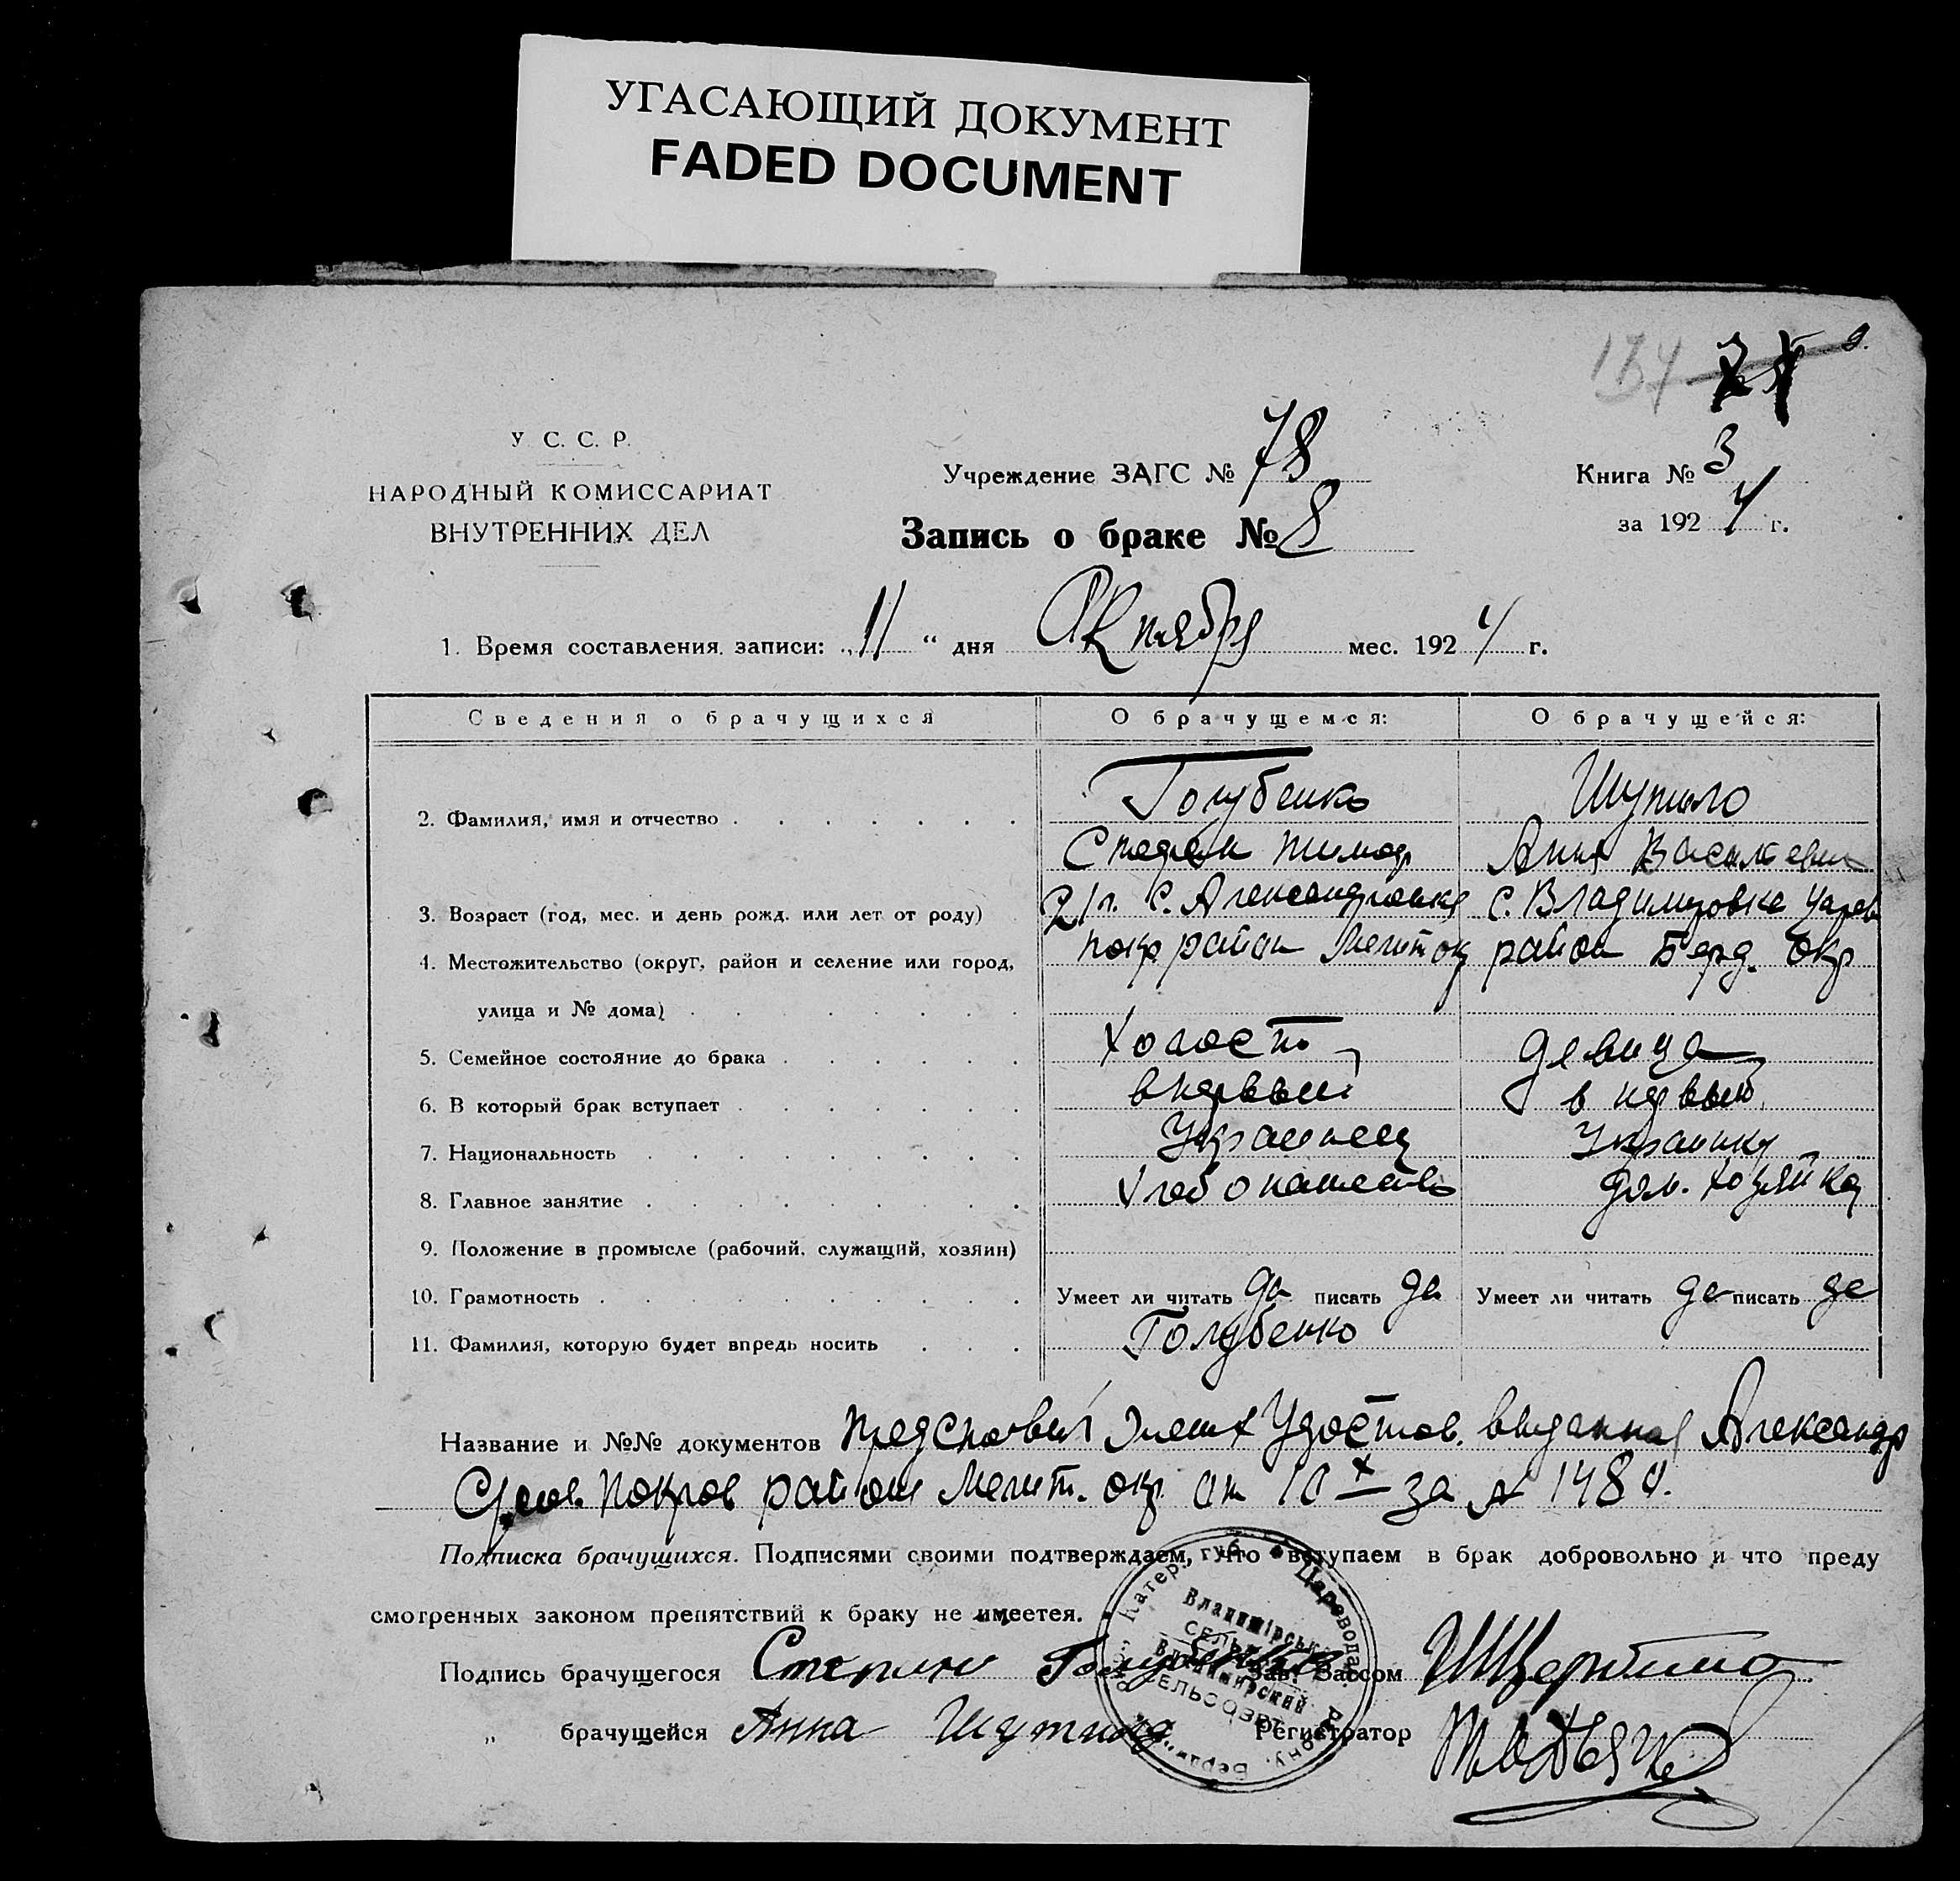 УГАСАЮЩИЙ ДОКУМЕНТ
FADED DOCUMENT
У С. С. Р.
НАРОДНЫЙ КОМИССАРИАТ
ВНУТРЕННИХ ДЕЛ
Учреждение ЗАГС № 78
Запись о браке № 8
Книга № 3
за 1924 г.
1. Время составления записи: „11“ дня Октября мес. 1924 г.
Сведения о брачущихся О брачущемся: О брачущейся:
2. Фамилия, имя и отчество Голубенко Шутило
Стефан Тимоф Анна Василевн
3. Возраст (год, мес. и день рожд. или лет от роду) 21 л. с. Александровка с. Владимировка Царев
4. Местожительство (округ, район и селение или город, покр район Мелит ок район Берд. Окр
улица и № дома)
5. Семейное состояние до брака холост девица
6. В который брак вступает в первый в первый
7. Национальность Украинец Украинка
8. Главное занятие хлебопашество дом. хозяйка
9. Положение в промысле (рабочий, служащий, хозяин)
10. Грамотность Умеет ли читать да писать да Умеет ли читать да писать да
11. Фамилия, которую будет впредь носить Голубенко
Название и №№ документов Удостов. выданная Александр
Покров район Мелит. окр. от 10 X за № 1480.
Подписка брачущихся. Подписями своими подтверждаем, что вступаем в брак добровольно и что преду
смотренных законом препятствий к браку не имеется.
Подпись брачущегося Степан Голубенко Зав. Загсом Щербина
„ брачущейся Анна Шутило Регистратор
Катер. губ. Царевода району, Берд
Владимірська
СЕЛЬРАДА
Владимирский
СЕЛЬСОВЕТ